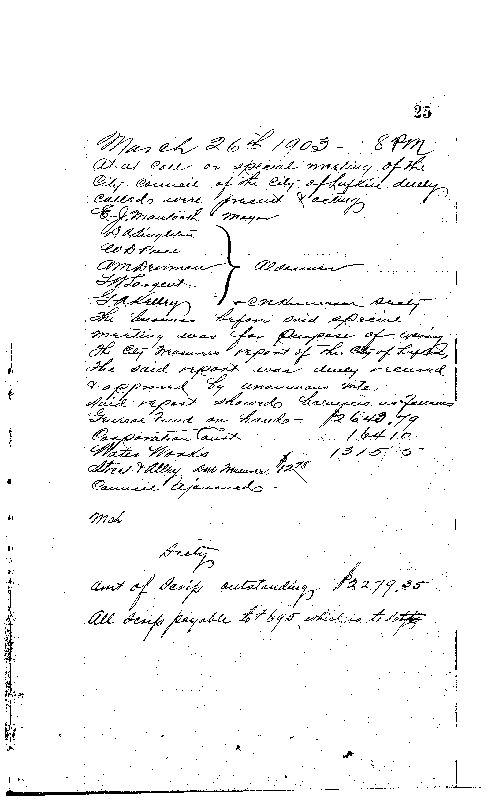 25
March 26th 1903 - 8 PM
At a call or special meeting of the
City Council of the City of Lufkin duly
called were present & acting
E. J. Mantooth Mayor
W D
A M Denman } Aldermen
T. H. Sargent
G. A. Kelley Secty
The business before said special
meeting was for purpose of
the City report of the City of Lufkin,
the said report was duly received
& approved by unanimous vote.
Said report showed balances as follows
General Fund on hand - $2643.79
Corporation Court 164 10
Water Works 1315
Street & Alley
Council Ajourned -
Secty
Amt of Scrip outstanding, $3279.35
All scrip payable to # 695 which is to